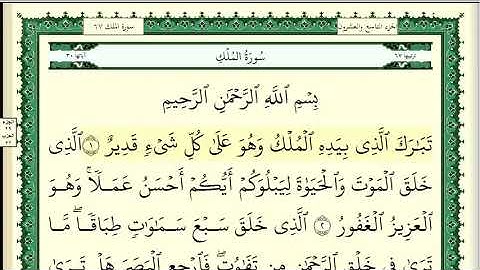 الجزء التاسع والعشرون
سورة الملك ٦٧
ترتيبها ٦٧
سُورَةُ المُلْكِ
آياتها ٣٠
بِسْمِ ٱللَّهِ ٱلرَّحْمَٰنِ ٱلرَّحِيمِ
تَبَٰرَكَ ٱلَّذِى بِيَدِهِ ٱلْمُلْكُ وَهُوَ عَلَىٰ كُلِّ شَىْءٍ قَدِيرٌ ١ ٱلَّذِى
خَلَقَ ٱلْمَوْتَ وَٱلْحَيَوٰةَ لِيَبْلُوَكُمْ أَيُّكُمْ أَحْسَنُ عَمَلًا ۚ وَهُوَ
ٱلْعَزِيزُ ٱلْغَفُورُ ٢ ٱلَّذِى خَلَقَ سَبْعَ سَمَٰوَٰتٍ طِبَاقًا ۖ مَّا
تَرَىٰ فِى خَلْقِ ٱلرَّحْمَٰنِ مِن تَفَٰوُتٍ ۖ فَٱرْجِعِ ٱلْبَصَرَ هَلْ تَرَىٰ
الجزء
٢٩
الحزب